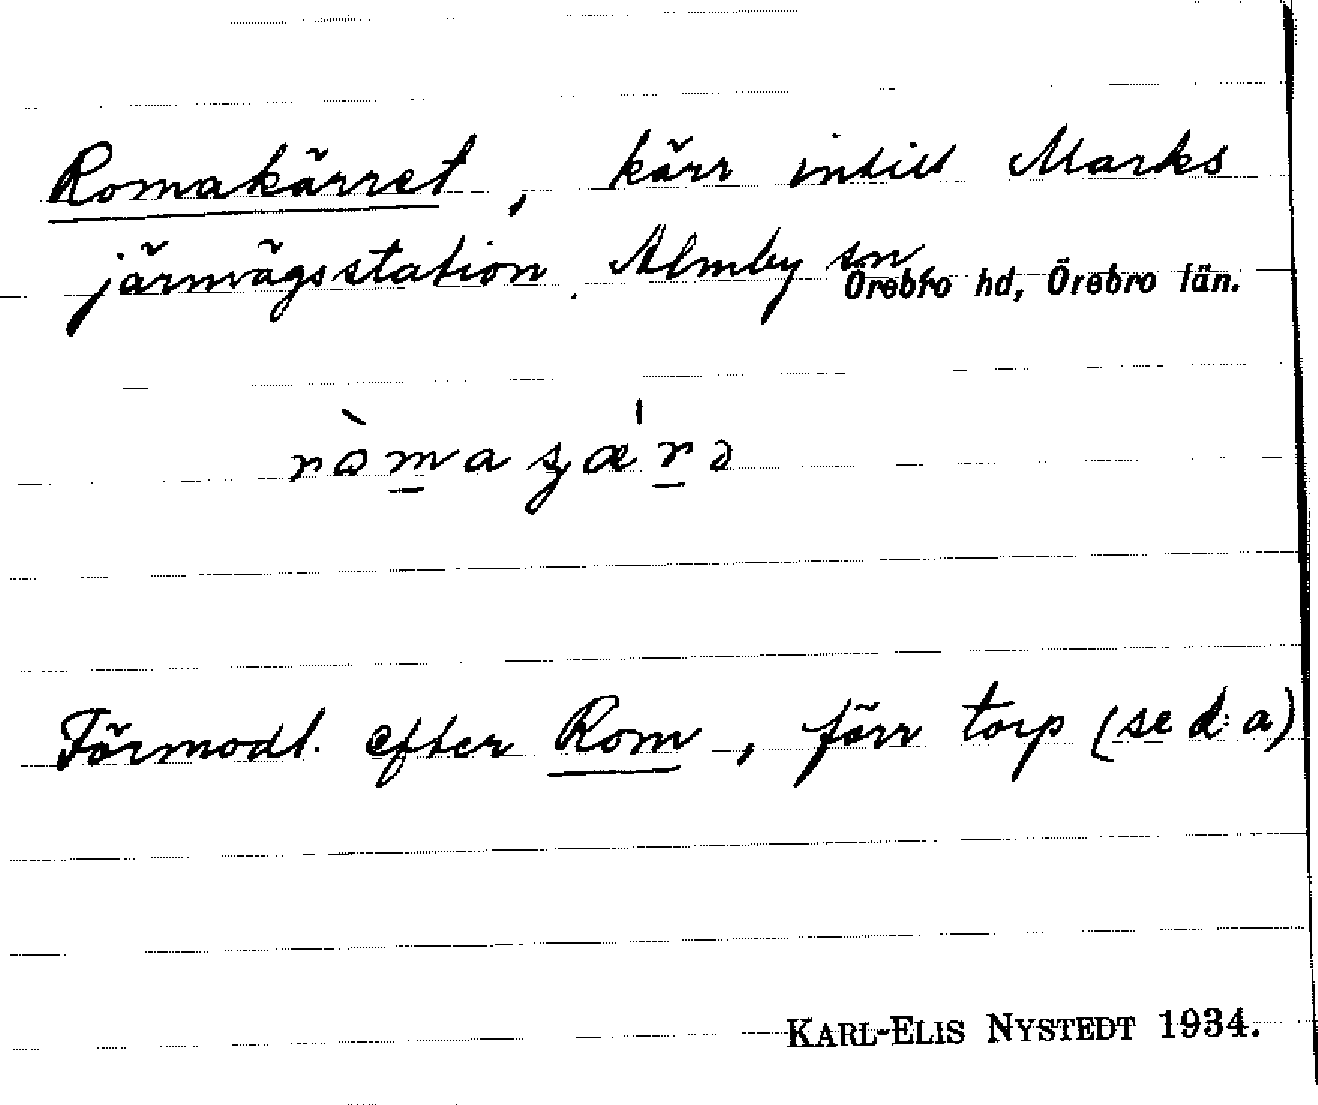 Romakärret, kärr intill Marks
järnvägsstation. Almby sn
Örebro hd, Örebro län.
ròmaʂæ̍rə
Förmodl. efter Rom, förr torp (se d: a)
KARL-ELIS NYSTEDT 1934.